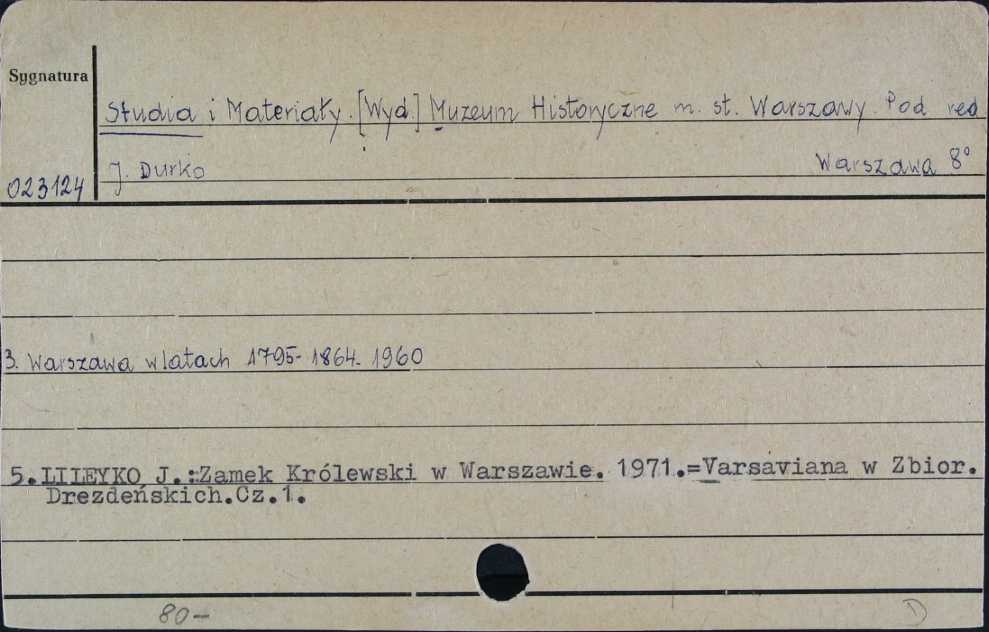 Sygnatura
Studia i Materiały. [Wyd.] Muzeum Historyczne m. st. Warszawy. Pod red
J. Durko Warszawa 8°
023124
3. Warszawa w latach 1795-1864. 1960
5. LILEYKO J.:Zamek Królewski w Warszawie. 1971.=Varsaviana w Zbior.
Drezdeńskich.Cz.1.
80-
D